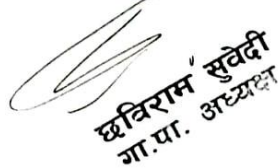 छविराम सुवेदी
गा.पा. अध्यक्ष